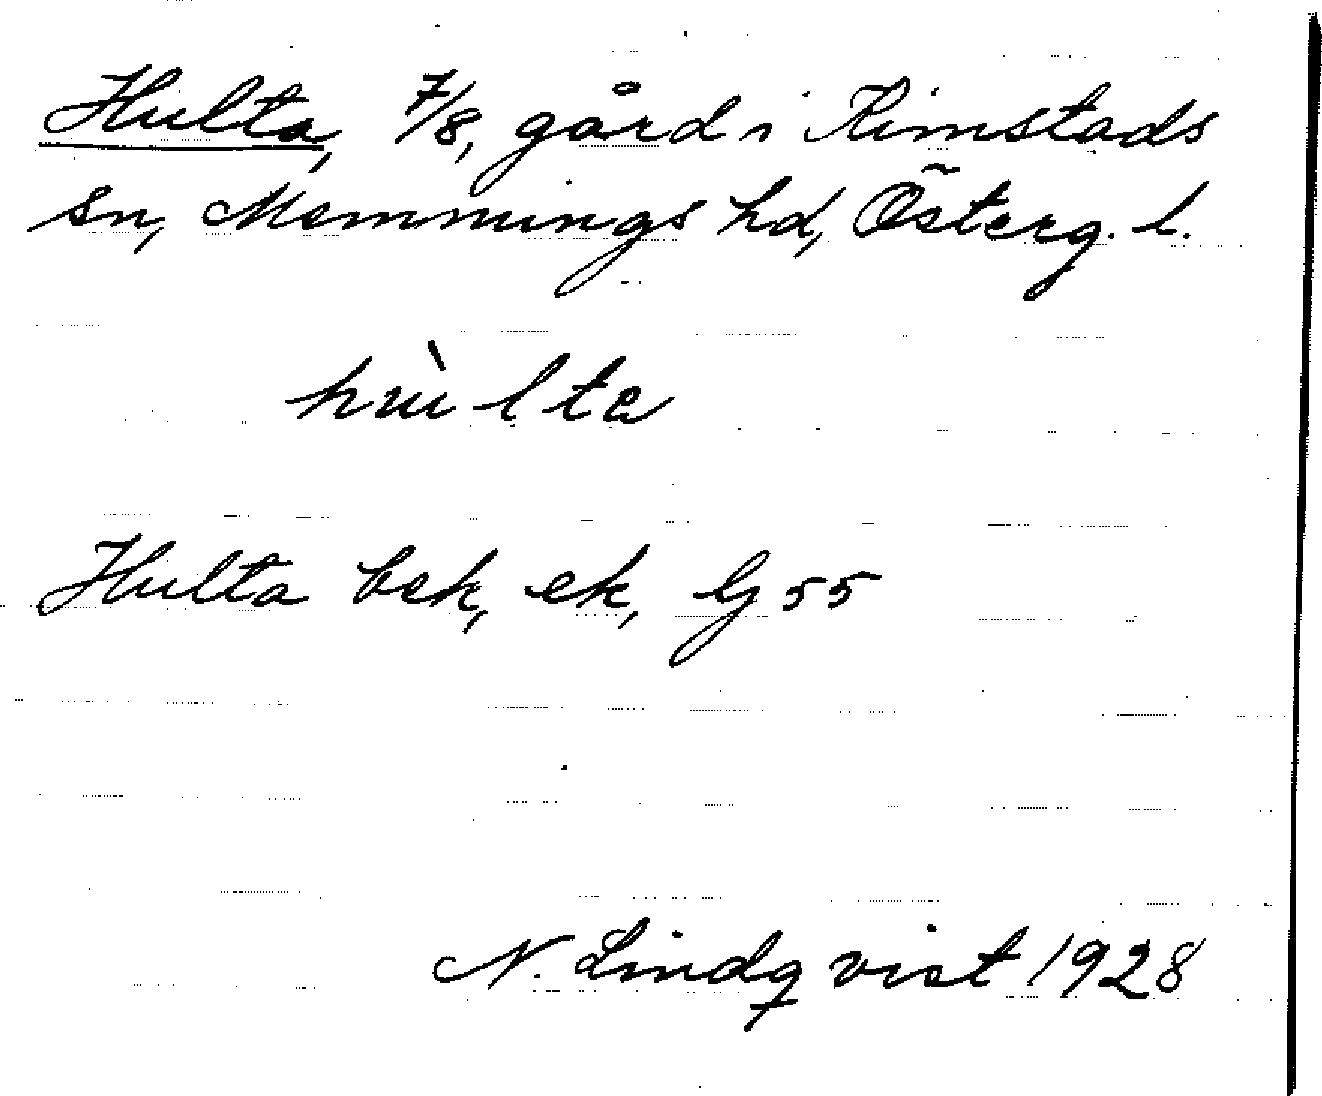 Hulta, 7/8, gård i Kimstads
sn, Memmings hd, Österg. l.
hùlta
Hulta bek, ek, G 55
N. Lindqvist 1928